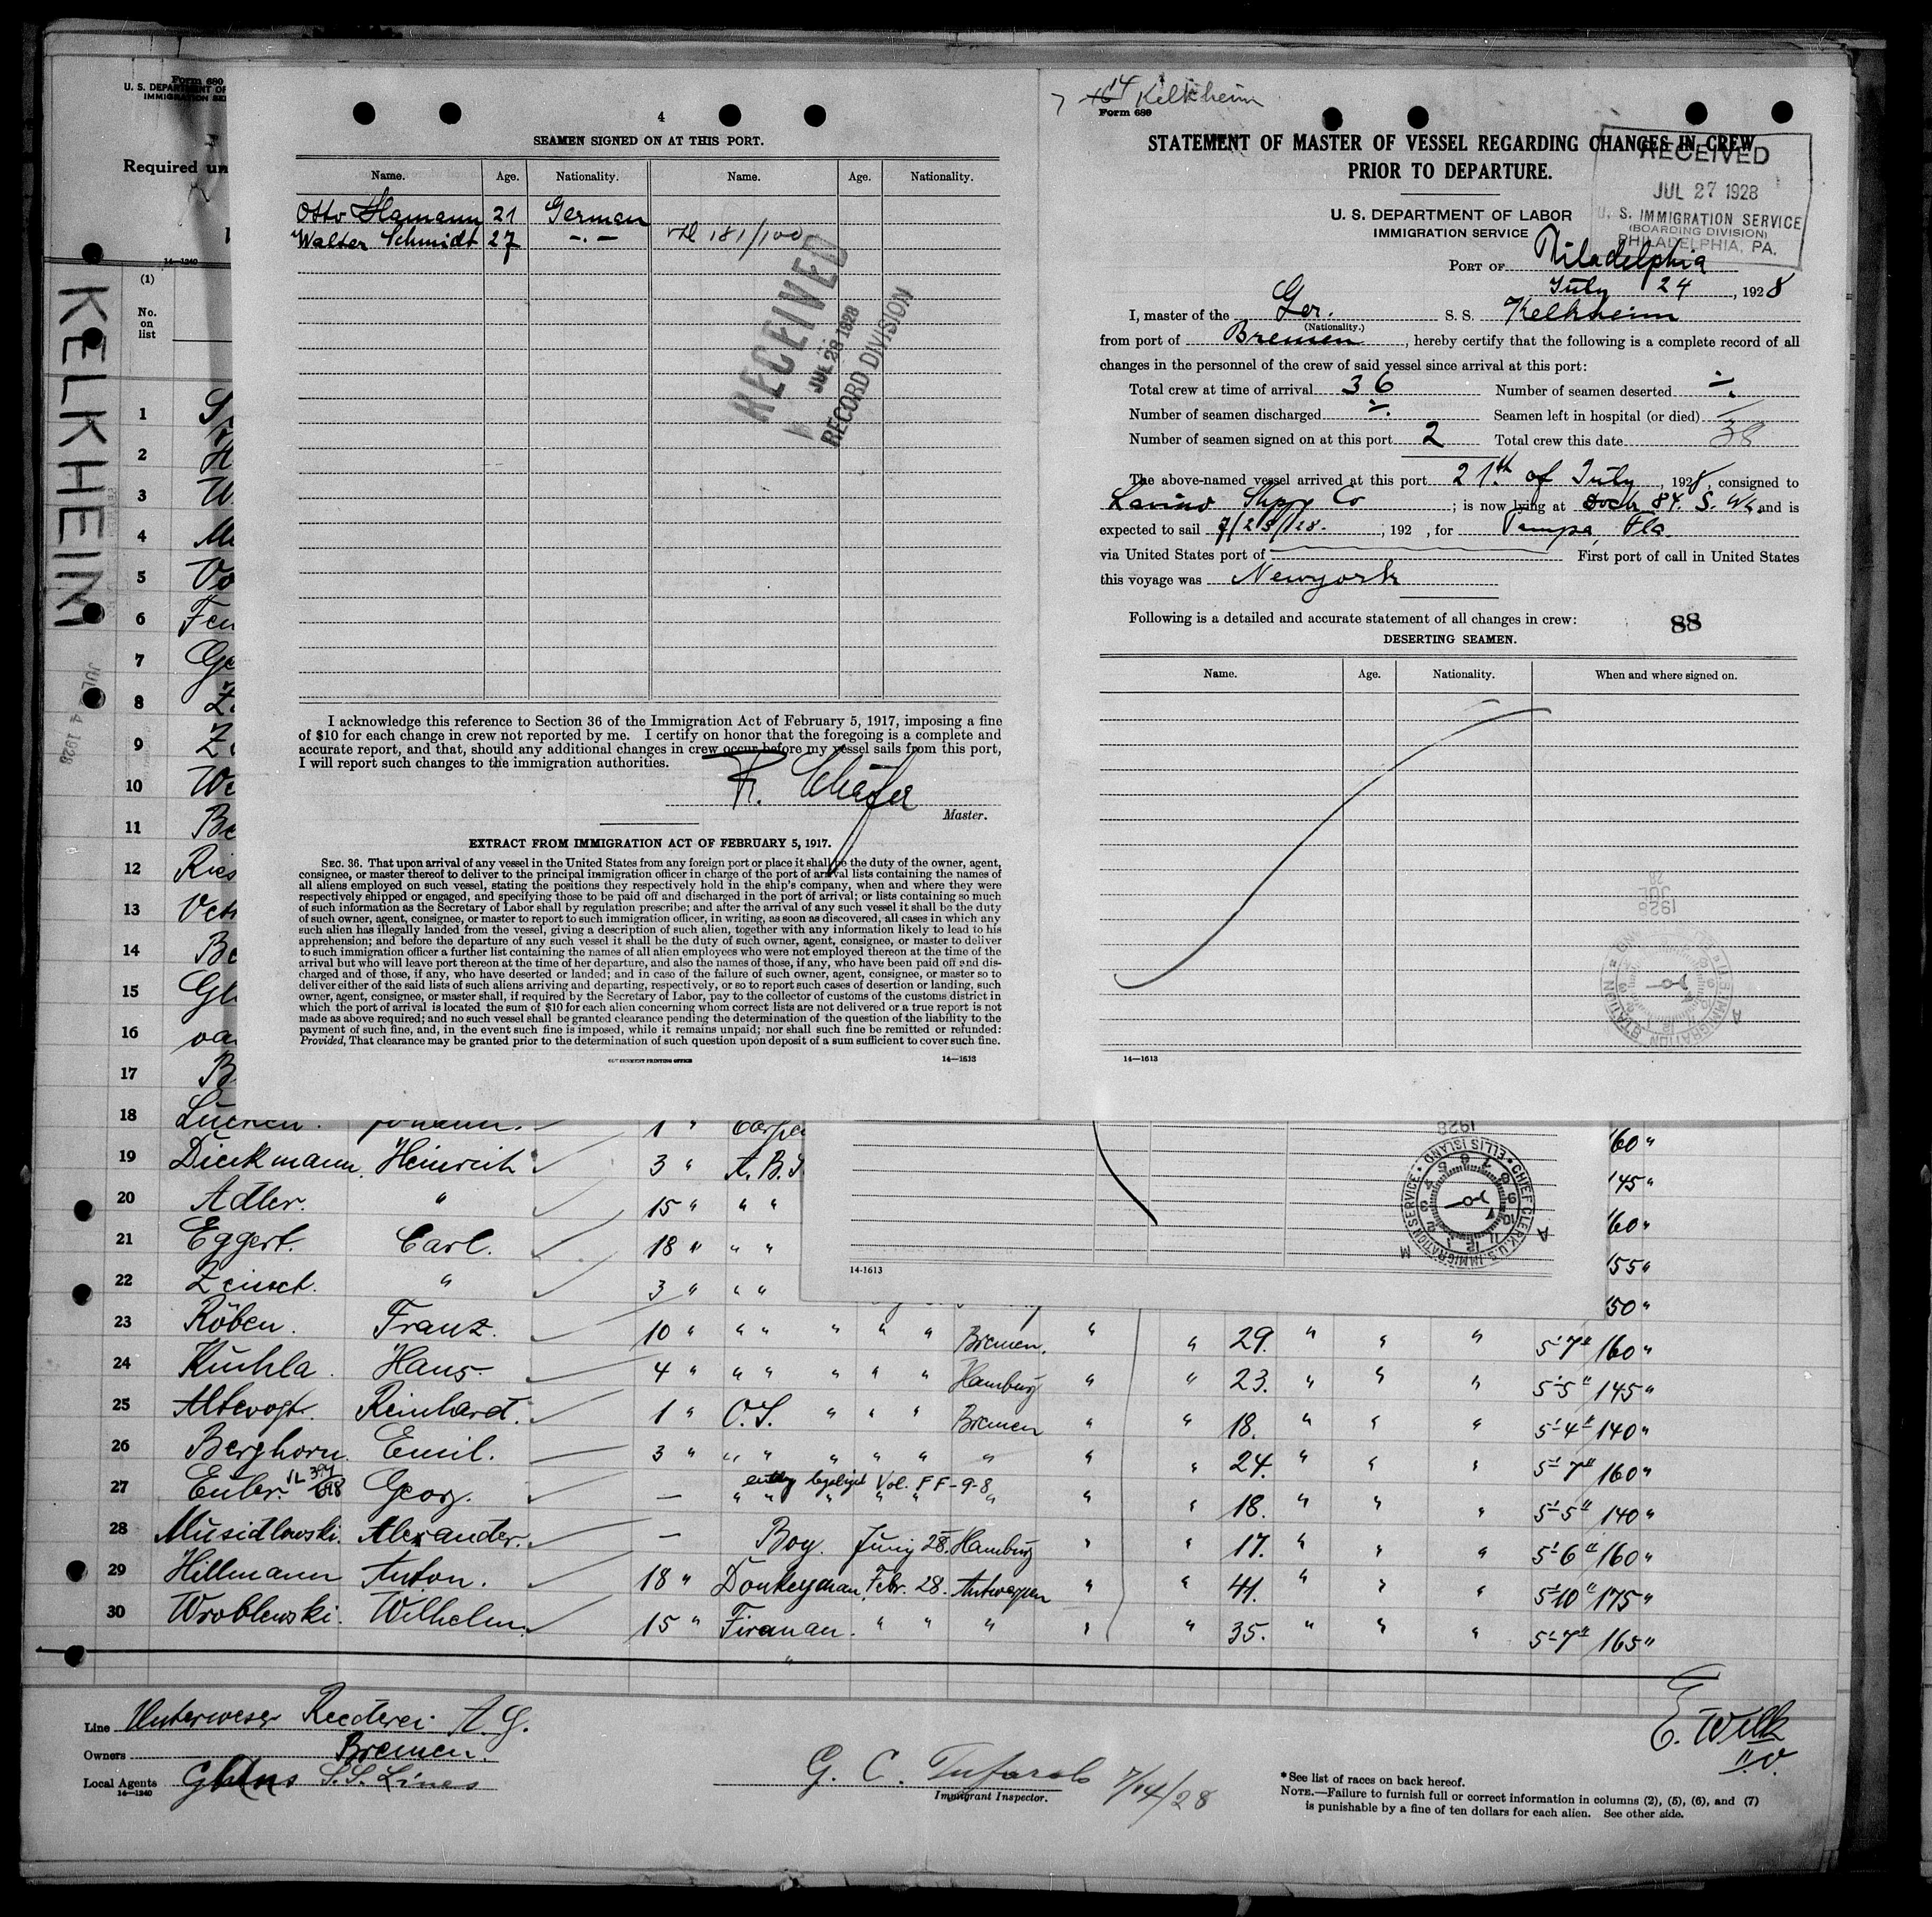 Form 680
U. S. DEPARTMENT OF
IMMIGRATION SE
Required un
14—1240
KELKHEIM
JUL 4 1928
(1)
No.
on
list
1
2 H
3 W
4 Me
5 Vo
6 Fen
7 Ge
8
9
10 We
11 Be
12 Ries
13 Vett
14 Be
15 Gl
16 va
17 B
4
SEAMEN SIGNED ON AT THIS PORT.
Name. Age. Nationality. Name. Age. Nationality.
Otto Hamann 21 German
Walter Schmidt 27 -.- 181/100
RECEIVED
JUL 28 1928
RECORD DIVISION
I acknowledge this reference to Section 36 of the Immigration Act of February 5, 1917, imposing a fine
of $10 for each change in crew not reported by me. I certify on honor that the foregoing is a complete and
accurate report, and that, should any additional changes in crew occur before my vessel sails from this port,
I will report such changes to the immigration authorities.
Schäfer
Master.
EXTRACT FROM IMMIGRATION ACT OF FEBRUARY 5, 1917.
SEC. 36. That upon arrival of any vessel in the United States from any foreign port or place it shall be the duty of the owner, agent,
consignee, or master thereof to deliver to the principal immigration officer in charge of the port of arrival lists containing the names of
all aliens employed on such vessel, stating the positions they respectively hold in the ship's company, when and where they were
respectively shipped or engaged, and specifying those to be paid off and discharged in the port of arrival; or lists containing so much
of such information as the Secretary of Labor shall by regulation prescribe; and after the arrival of any such vessel it shall be the duty
of such owner, agent, consignee, or master to report to such immigration officer, in writing, as soon as discovered, all cases in which any
such alien has illegally landed from the vessel, giving a description of such alien, together with any information likely to lead to his
apprehension; and before the departure of any such vessel it shall be the duty of such owner, agent, consignee, or master to deliver
to such immigration officer a further list containing the names of all alien employees who were not employed thereon at the time of the
arrival but who will leave port thereon at the time of her departure, and also the names of those, if any, who have been paid off and dis-
charged and of those, if any, who have deserted or landed; and in case of the failure of such owner, agent, consignee, or master so to
deliver either of the said lists of such aliens arriving and departing, respectively, or so to report such cases of desertion or landing, such
owner, agent, consignee, or master shall, if required by the Secretary of Labor, pay to the collector of customs of the customs district in
which the port of arrival is located the sum of $10 for each alien concerning whom correct lists are not delivered or a true report is not
made as above required; and no such vessel shall be granted clearance pending the determination of the question of the liability to the
payment of such fine, and, in the event such fine is imposed, while it remains unpaid; nor shall such fine be remitted or refunded:
Provided, That clearance may be granted prior to the determination of such question upon deposit of a sum sufficient to cover such fine.
GOVERNMENT PRINTING OFFICE 14—1613
14 Kelkheim
Form 689
STATEMENT OF MASTER OF VESSEL REGARDING CHANGES IN CREW
PRIOR TO DEPARTURE.
RECEIVED
JUL 27 1928
U. S. IMMIGRATION SERVICE
(BOARDING DIVISION)
PHILADELPHIA, PA.
U. S. DEPARTMENT OF LABOR
IMMIGRATION SERVICE
PORT OF Philadelphia
July 24, 1928
I, master of the Ger. S. S. Kelkheim
(Nationality.)
from port of Bremen, hereby certify that the following is a complete record of all
changes in the personnel of the crew of said vessel since arrival at this port:
Total crew at time of arrival 36 Number of seamen deserted
Number of seamen discharged Seamen left in hospital (or died)
Number of seamen signed on at this port 2 Total crew this date 38
The above-named vessel arrived at this port 21th of July, 1928, consigned to
Lavino Shpg Co; is now lying at Dock 84. S. Wh, and is
expected to sail 7/25/128., 192 , for Tampa, Fla.
via United States port of First port of call in United States
this voyage was Newyork
Following is a detailed and accurate statement of all changes in crew: 88
DESERTING SEAMEN.
Name. Age. Nationality. When and where signed on.
1928
JUL
28
14—1613
18 Lücken. Johann. 1 " Carpe 160 "
19 Dieckmann Heinrich 3 " A. B. S 145 "
20 Adler. " 15 " " " 160 "
21 Eggert. Carl. 18 " " " 155 "
22 " 3 " " " 150 "
1928
CHIEF CLERK, U.S. IMMIGRATION SERVICE • ELLIS ISLAND
14-1613
23 Röben. Franz. 10 " " " " " " Bremen. " " 29. " " " 5-7" 160 "
24 Kuchla. Hans. 4 " " " " " " Hamburg " " 23. " " " 5-5" 145 "
25 Altevogt. Reinhard. 1 " O.S. " " " Bremen " " 18. " " " 5-4" 140 "
26 Berghorn. Emil. 3 " " " " " " " " " 24. " " " 5-7" 160 "
Vol. FF-9-8
27 Euler. Georg. — " " " " " " " " 18. " " " 5-5" 140 "
28 Musidlowski. Alexander. — Boy. Juny 28. Hamburg " " 17. " " " 5-6" 160 "
29 Hillmann Anton. 18 " Donkeyman. Febr. 28. Antwerpen " " 41. " " " 5-10" 175 "
30 Wroblewski. Wilhelm. 15 " Fireman. " " " " " 35. " " " 5-7" 165 "
Line Unterweser Reederei A. G.
Owners Bremen.
Local Agents S.S. Lines
14—1240
G. C. 7/14/28
Immigrant Inspector.
E. Wilk
* See list of races on back hereof.
NOTE.—Failure to furnish full or correct information in columns (2), (5), (6), and (7)
is punishable by a fine of ten dollars for each alien. See other side.